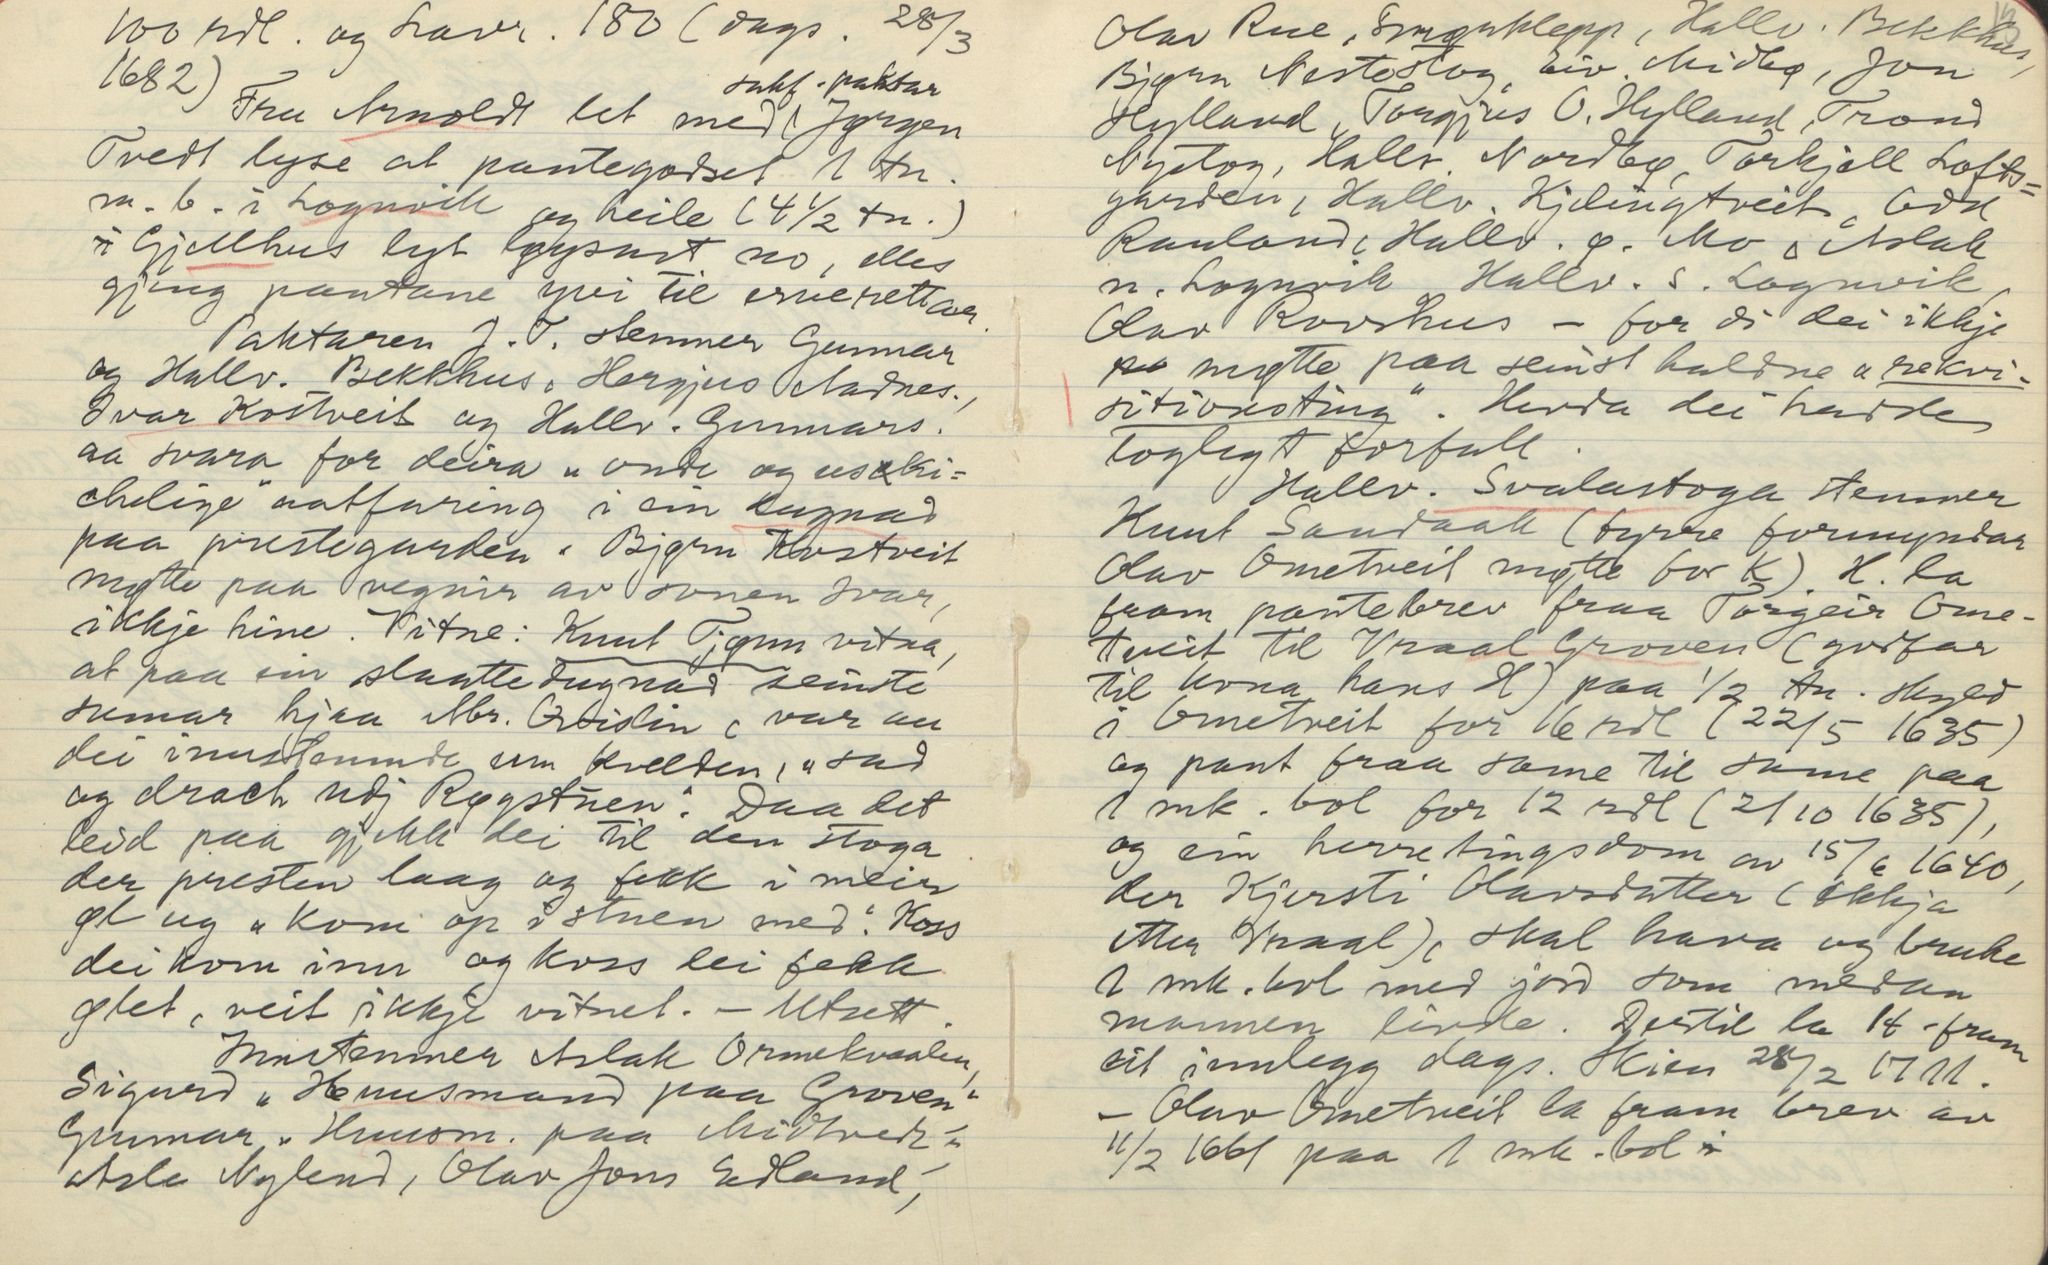 100 rdl. og Lavr. 180 (dags. 28/3
1682)
sakf. paktar
Fru Arnoldt let med Jørgen
Tvedt lyse at pantegodset 1 tn.
m. b. i Lognvik og heile (4 1/2 tn.)
i Gjellhus lyt løysast no, elles
gjeng pantane yvi til

Paktaren J. T. stemner Gunnar
og Hallv. Bekkhus, Hergjus Aadnes.,
Ivar Kostveit og Hallv. Gunnars.
aa svara for deira "onde og uski-
chelige" aatfaring i ein dugnad
paa prestegarden. Bjørn Kostveit
møtte paa vegnir av sonen Ivar,
ikkje hine. Vitne: Knut Tjønn vitna,
at paa ein slaattedugnad seinste
sumar hjaa Mr. Ørsidin, var au
dei innstemnde um kvelden, "sad
og drach udj Røgstuen". Daa det
leid paa gjekk dei til den stoga
der presten laag og fekk i meir
øl og "kom op i stuen med". Koss
dei kom inn og koss dei fekk
ølet, veit ikkje vitnet. - Utsett.
Innstemner Aslak Ormekvaalen,
Sigurd "Huusmand paa Groven"
Gunnar "Huusm. paa Midtvedt"
Asle Nylend, Olav Jons Edland,
Olav Rue, Smørklepp, Hallv. Bekkhus,
Bjørn Nestestog, Eiv. Midbø, Jon
Hylland, Torgjus O. Hylland, Trond
Nystog, Hallv. Nordbø, Torkjell Lofts=
garden, Hallv. Kjelingtveit, Odd
Rauland, Hallv. ø. Mo, Aslak
n. Lognvik, Hallv. s. Lognvik,
Olav Rovshus - for di dei ikkje
møtte paa seinst haldne "rekvi-
sitionsting". Herda dei hadde
loglegt forfall.
Hallv. Svalastoga stemner
Knut Sandaak (fyrre formyndar
Olav Ometveit møtte for K). H. la
fram pantebrev fraa Torgeir Ome-
tveit til Vraal Groven (godfar
til kona hans H) paa 1/2 tn. skyld
i Ometveit for 16 rdl (22/5 1635)
og pant fraa same til same paa
1 mk. bol for 12 rdl (2/10 1635),
og ein herretingsdom av 15/6 1640,
der Kjersti Olavsdatter (ekkja
etter Vraal), skal hava og bruke
1 mk. bol med jord som medan
mannen livde. Dertil la H. fram
eit innlegg dags. Skien 28/2 1711.
- Olav Ometveit la fram brev av
11/2 1661 paa 1 mk. bol i